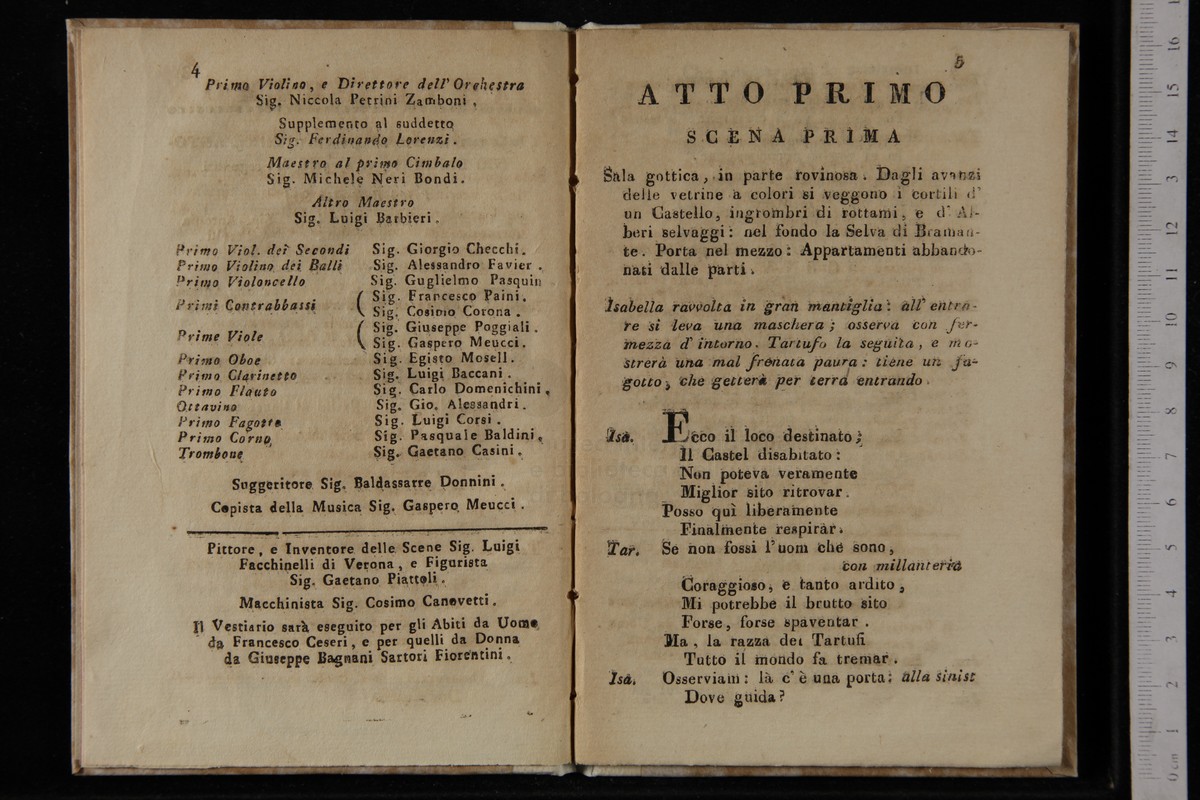 4
Primo Violino, e Direttore dell' Orchestra
Sig. Niccola Petrini Zamboni,
Supplemento al suddetto
Sig. Ferdinando Lorenzi.
Maestro al primo Cimbalo
Sig. Michele Neri Bondi.
Altro Maestro
Sig. Luigi Barbieri.
Primo Viol. dei Secondi Sig. Giorgio Checchi.
Primo Violino dei Balli Sig. Alessandro Favier.
Primo Violoncello Sig. Guglielmo Pasquin
Primi Contrabbassi ( Sig. Francesco Paini.
( Sig. Cosimo Corona.
Prime Viole ( Sig. Giuseppe Poggiali.
( Sig. Gaspero Meucci.
Primo Oboe Sig. Egisto Mosell.
Primo Clarinetto Sig. Luigi Baccani.
Primo Flauto Sig. Carlo Domenichini,
Ottavino Sig. Gio. Alessandri.
Primo Fagotto Sig. Luigi Corsi.
Primo Corno Sig. Pasquale Baldini,
Trombone Sig. Gaetano Casini.
Suggeritore Sig. Baldassarre Donnini.
Copista della Musica Sig. Gaspero Meucci.
Pittore, e Inventore delle Scene Sig. Luigi
Facchinelli di Verona, e Figurista
Sig. Gaetano Piattoli.
Macchinista Sig. Cosimo Canovetti.
Il Vestiario sarà eseguito per gli Abiti da Uomo
da Francesco Ceseri, e per quelli da Donna
da Giuseppe Bagnani Sartori Fiorentini.
5
ATTO PRIMO
SCENA PRIMA
Sala gottica, in parte rovinosa. Dagli avanzi
delle vetrine a colori si veggono i cortili d'
un Castello, ingrombri di rottami, e d' Al-
beri selvaggi: nel fondo la Selva di Braman-
te. Porta nel mezzo: Appartamenti abbando-
nati dalle parti.
Isabella ravvolta in gran mantiglia: all' entra-
re si leva una maschera; osserva con fer-
mezza d' intorno. Tartufo la seguita, e mo-
strerà una mal frenata paura: tiene un fa-
gotto, che getterà per terra entrando.
Isa. Ecco il loco destinato;
Il Castel disabitato:
Non poteva veramente
Miglior sito ritrovar.
Posso quì liberamente
Finalmente respirar.
Tar. Se non fossi l'uom che sono,
con millanteria
Coraggioso, e tanto ardito,
Mi potrebbe il brutto sito
Forse, forse spaventar.
Ma, la razza dei Tartufi
Tutto il mondo fa tremar.
Isa. Osserviam: là c' è una porta; alla sinist
Dove guida?
0 cm 1 2 3 4 5 6 7 8 9 10 11 12 13 14 15 16